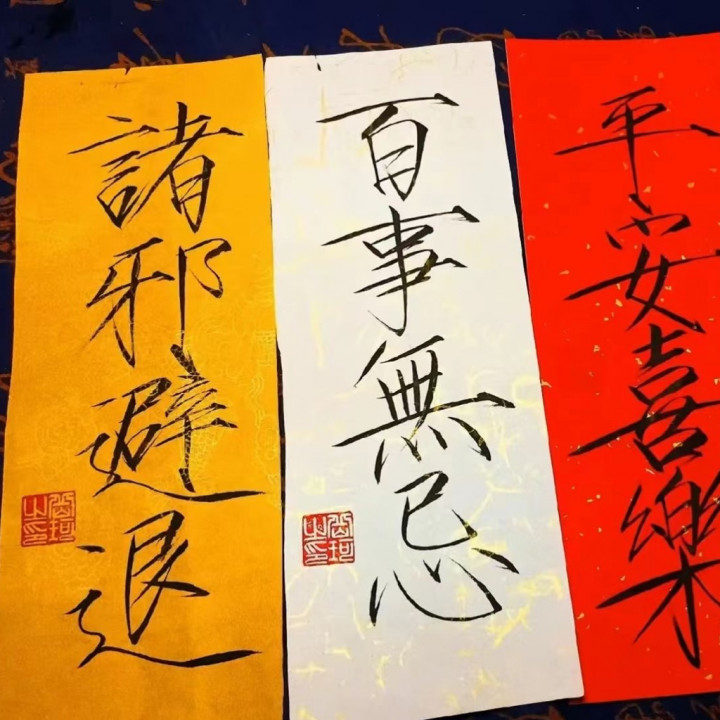 諸邪避退
百事無忌
平安喜樂